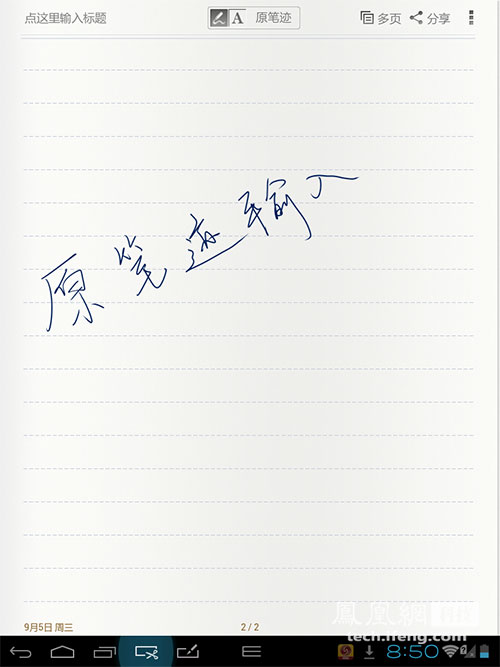 点这里输入标题
A
原笔迹
多页
分享
原笔迹输入
9月5日 周三
2 / 2
鳳凰網 科技
tech.ifeng.com
8:50